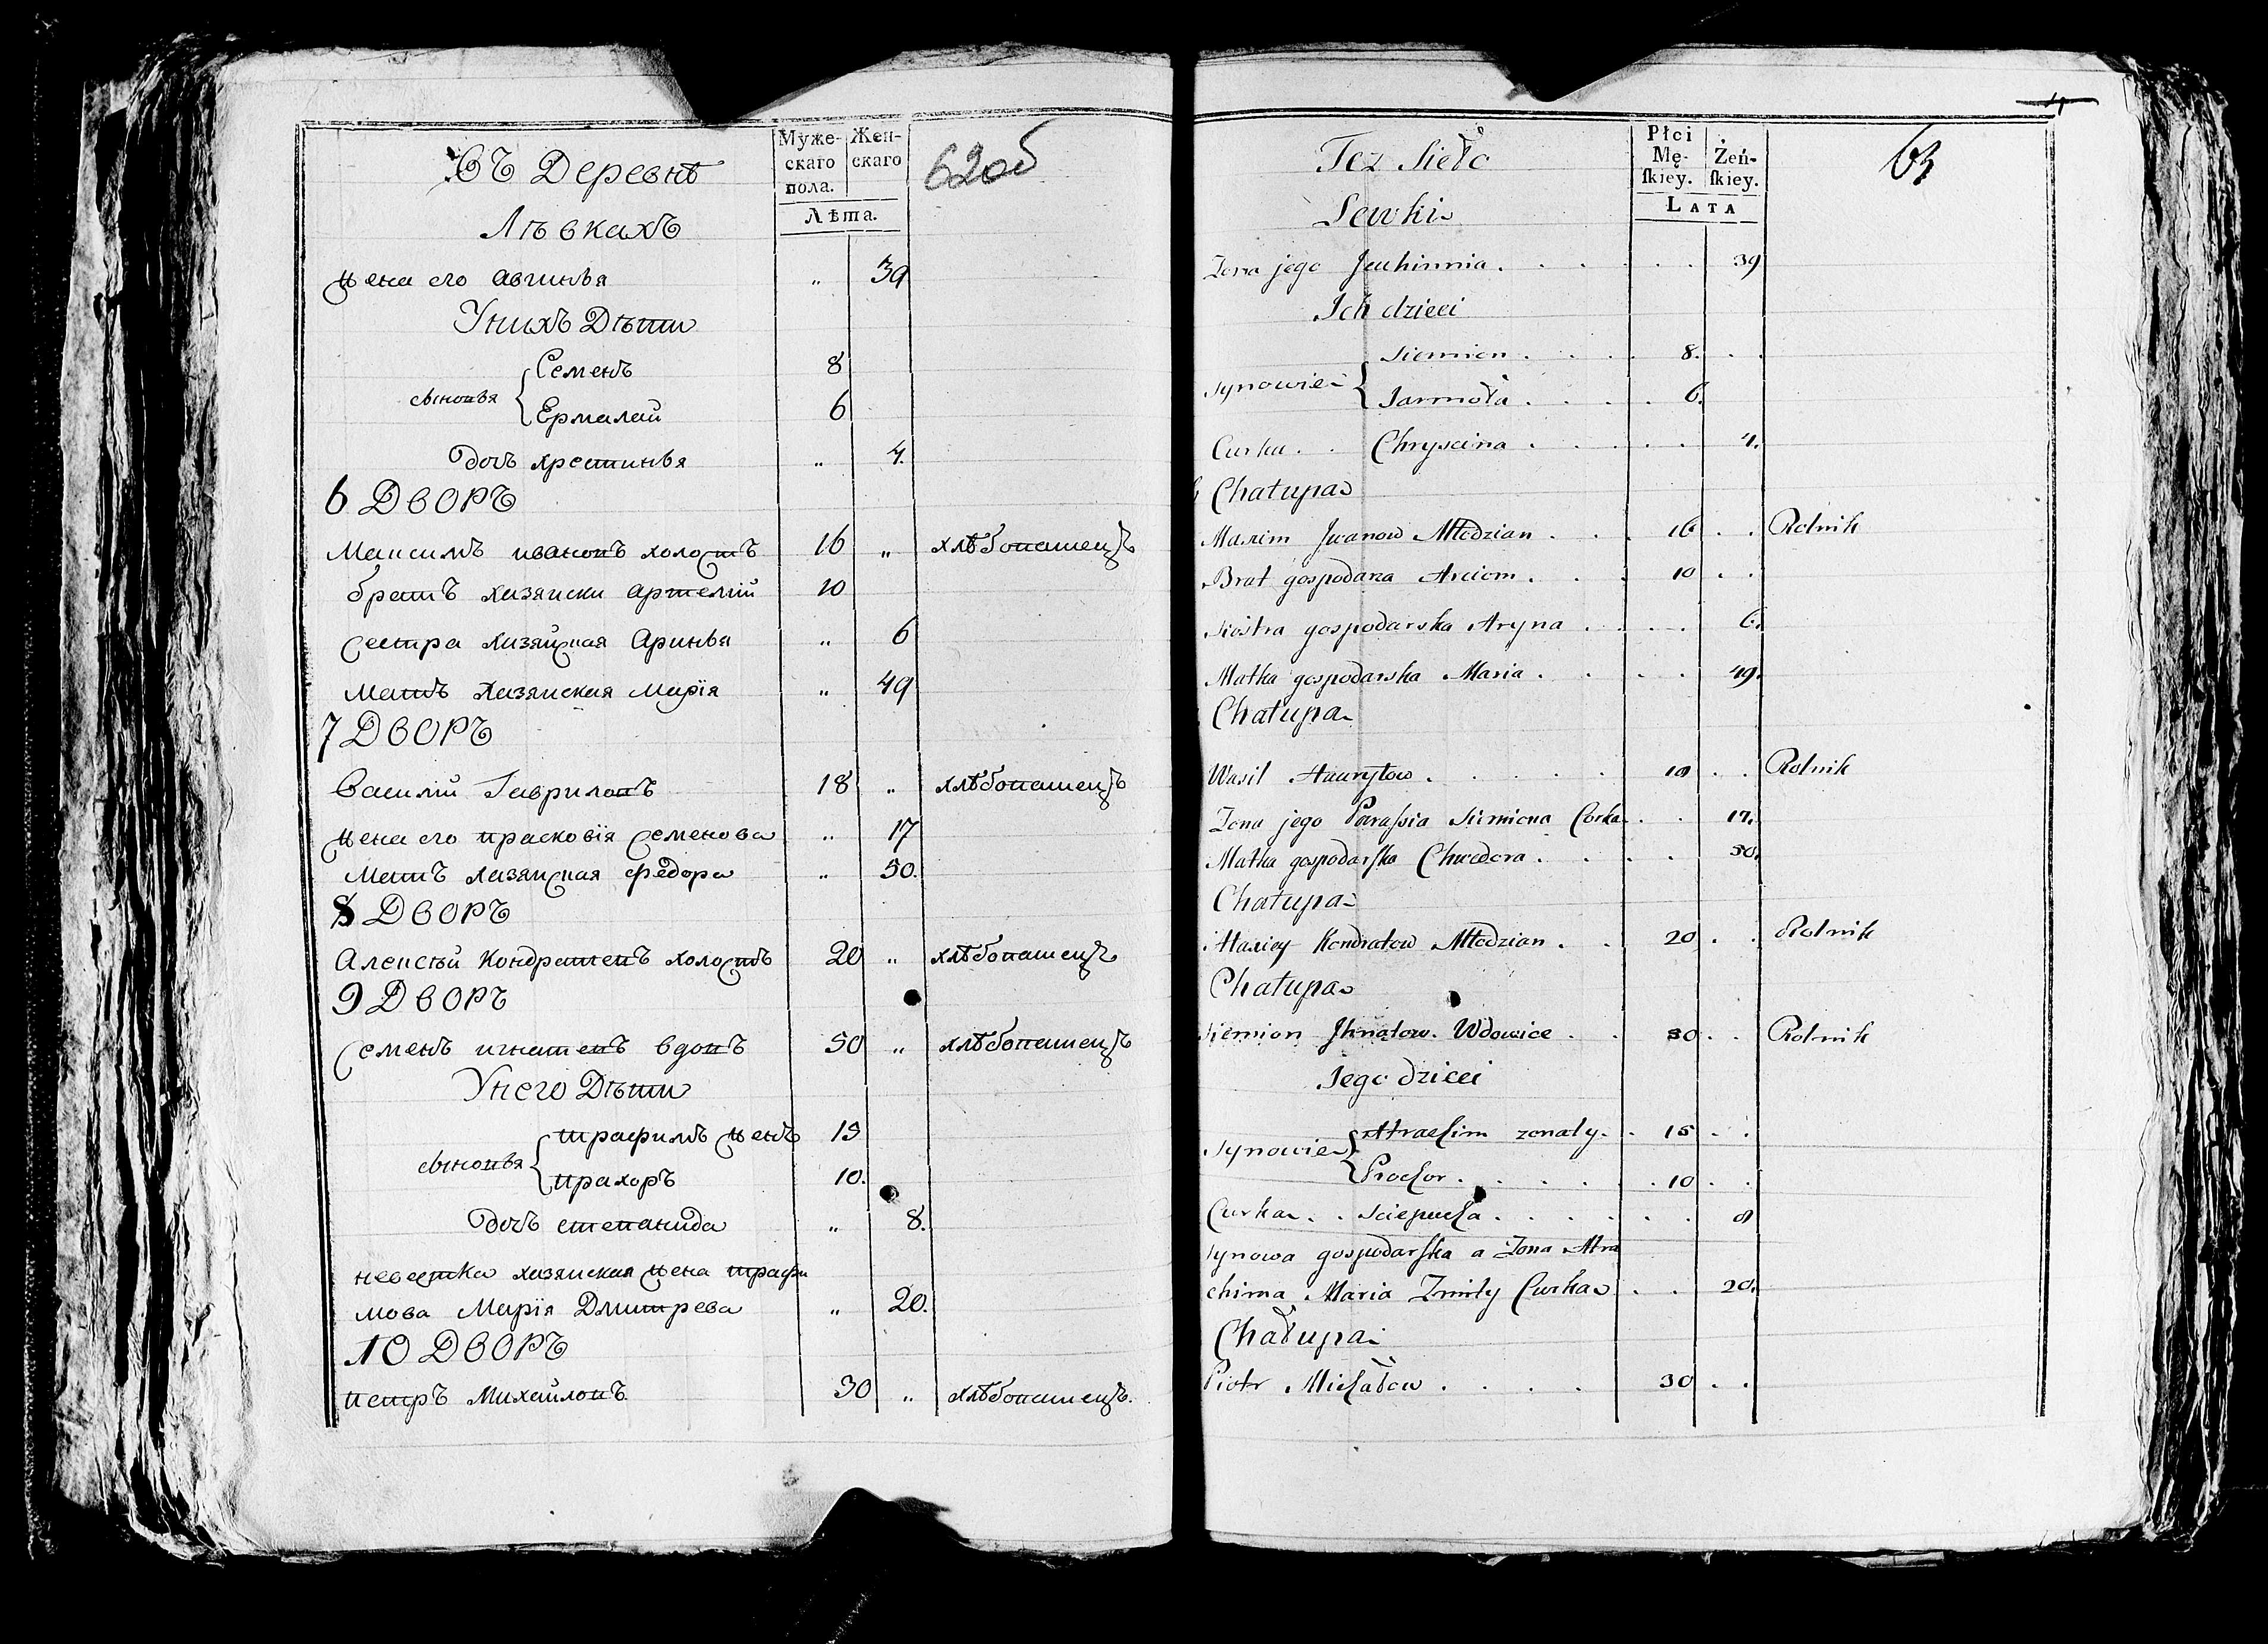 Муже-
скаго
пола.
Жен-
скаго
Лѣта.
62об
Въ Деревнѣ
Лѣвкахъ
жена его авгинья „ 39
Унихъ Дѣти
сыновья { Семенъ 8
Ермалай 6
дочь христинья „ 4.
6 ДВОРЪ
Максимъ ивановъ холостъ 16 „ хлѣбопашецъ
братъ хазяиски артемій 10
сестра хазяйская Аринья „ 6
мать Хазяиская марія „ 49
7 ДВОРЪ
Василій Гавриловъ 18 „ хлѣбопашецъ
жена его прасковія Семенова „ 17
мать хазяиская федора „ 50.
8 ДВОРЪ
Алексѣй Кондратевъ холостъ 20 „ хлѣбопашецъ
9 ДВОРЪ
Семенъ игнатевъ вдовъ 50 „ хлѣбопашецъ
Унего Дѣти
сыновья { трафимъ женъ 15
прахоръ 10.
дочь степанида „ 8.
невестка хазяиская жена трафи
мова Марія Дмитрева „ 20.
10 ДВОРЪ
петръ Михайловъ 30 „ хлѣбопашецъ.
Płci
Mę-
ſkiey.
Żeń-
ſkiey.
LATA
63
Tez Sieło
Lewki
Zona jego Jauhinnia . . . . . 39
Ich dzieci
Synowie { Siemien . . . . 8. . .
Jarmoła . . . . 6.
Curka . . Chryscina . . . . . 4.
6 Chałupa
Maxim Jwanow Młodzian . . . 16 . . Rolnik
Brat gospodarza Arciom . . . 10 . .
Siostra gospodarska Aryna . . . . 6.
Matka gospodarska Maria . . . . 49.
Chałupa
Wasil Hauryłow . . . . . 18 . . Rolnik
Zona jego Parafsia Siemiona Corka . . 17.
Matka gospodarſka Chwedora . . . . 50.
Chałupa
Alaxiey Kondratow Młodzian . . 20 . . Rolnik
Chałupa
Siemion Jhnatow Wdowiec . . 50 . . Rolnik
Jego dzieci
Synowie { Atrachim zonaty . . 15 . .
Prochor . . . . . . 10 . .
Curka . . Sciepucha . . . . . . 8
Synowa gospodarſka a Zona Atra
chima Maria Zmitry Curka . . 20.
Chałupa
Piotr Michałow . . . . 30 . .